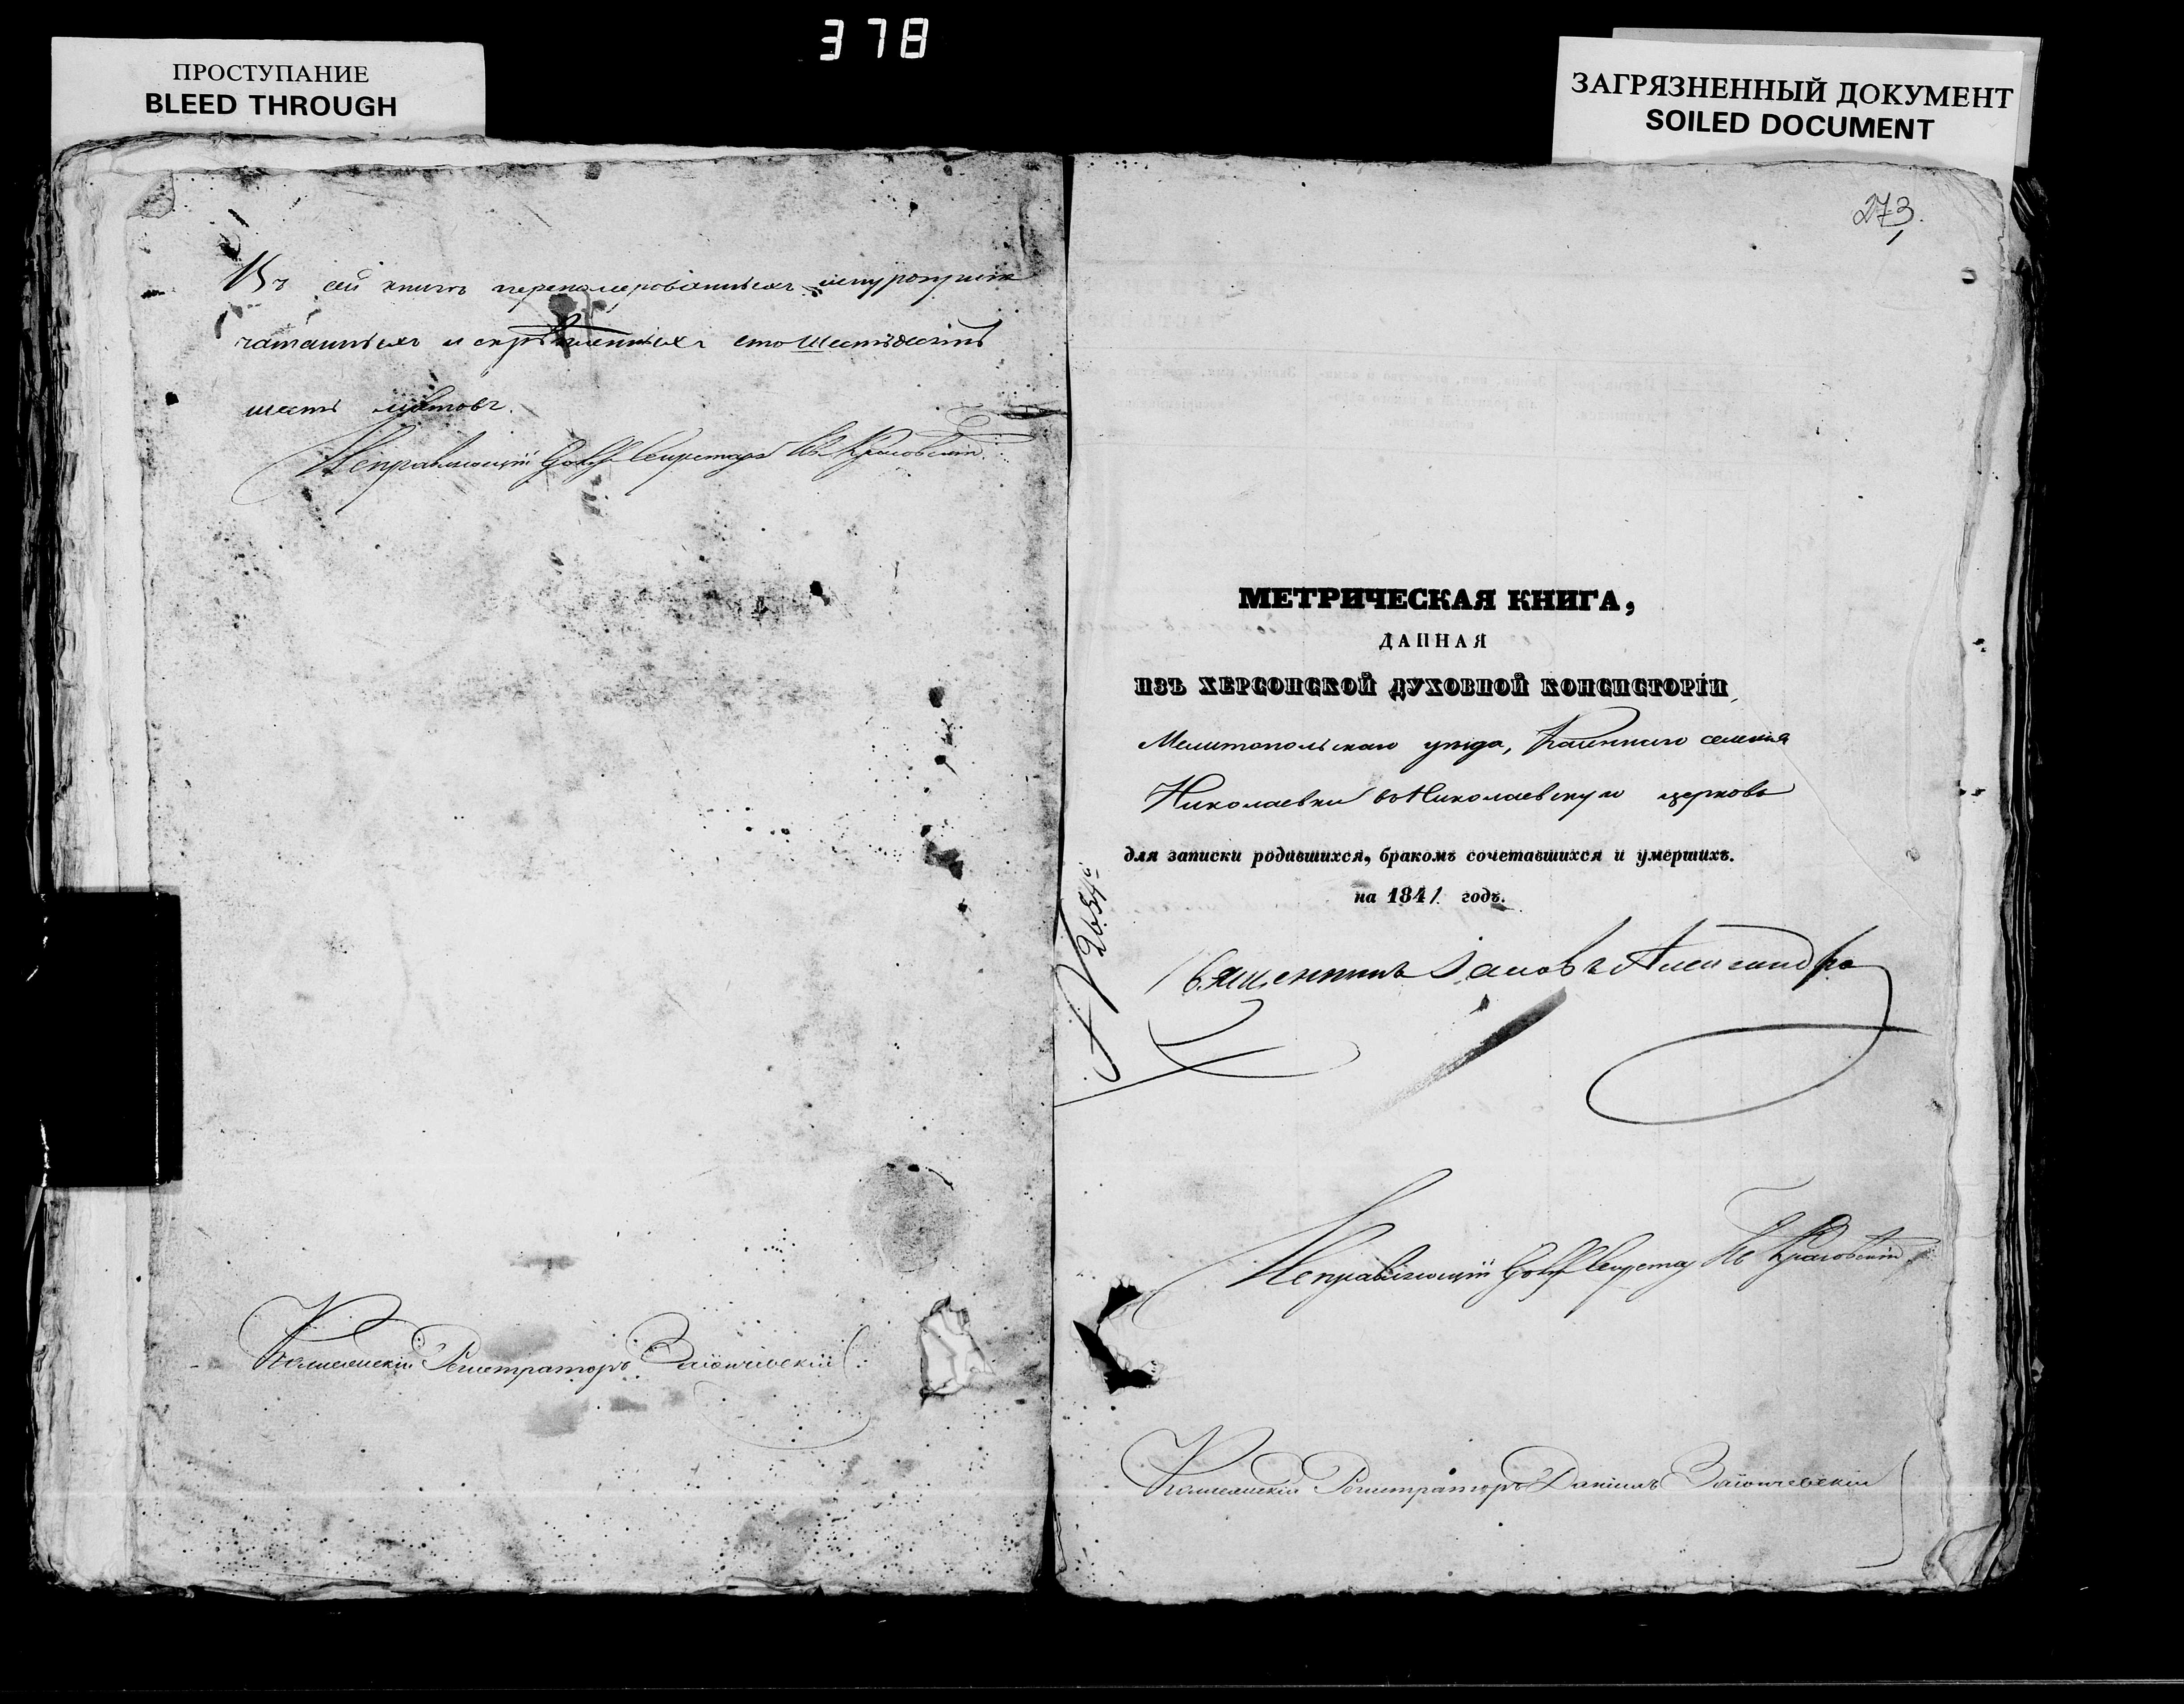 378
ПРОСТУПАНИЕ
BLEED THROUGH
ЗАГРЯЗНЕННЫЙ ДОКУМЕНТ
SOILED DOCUMENT
Въ сей книгѣ перенумерованныхъ шнуроприпе
чатанныхъ и скрѣпленныхъ сто шестьдесятъ
шесть листовъ.
Исправляющій Секретаря
Коллежскій Регистраторъ Заіончевскій
273
МЕТРИЧЕСКАЯ КНИГА,
ДАННАЯ
ИЗЪ ХЕРСОНСКОЙ ДУХОВНОЙ КОНСИСТОРІИ
Мелитопольскаго уѣзда, Казеннаго селенія
Николаевки въ Николаевскую церковь
для записки родившихся, бракомъ сочетавшихся и умершихъ.
на 1841 годъ.
Священникъ Іаковъ Александро
Исправляющій Секретаря
Коллежскій Регистраторъ Даніилъ Заіончевскій